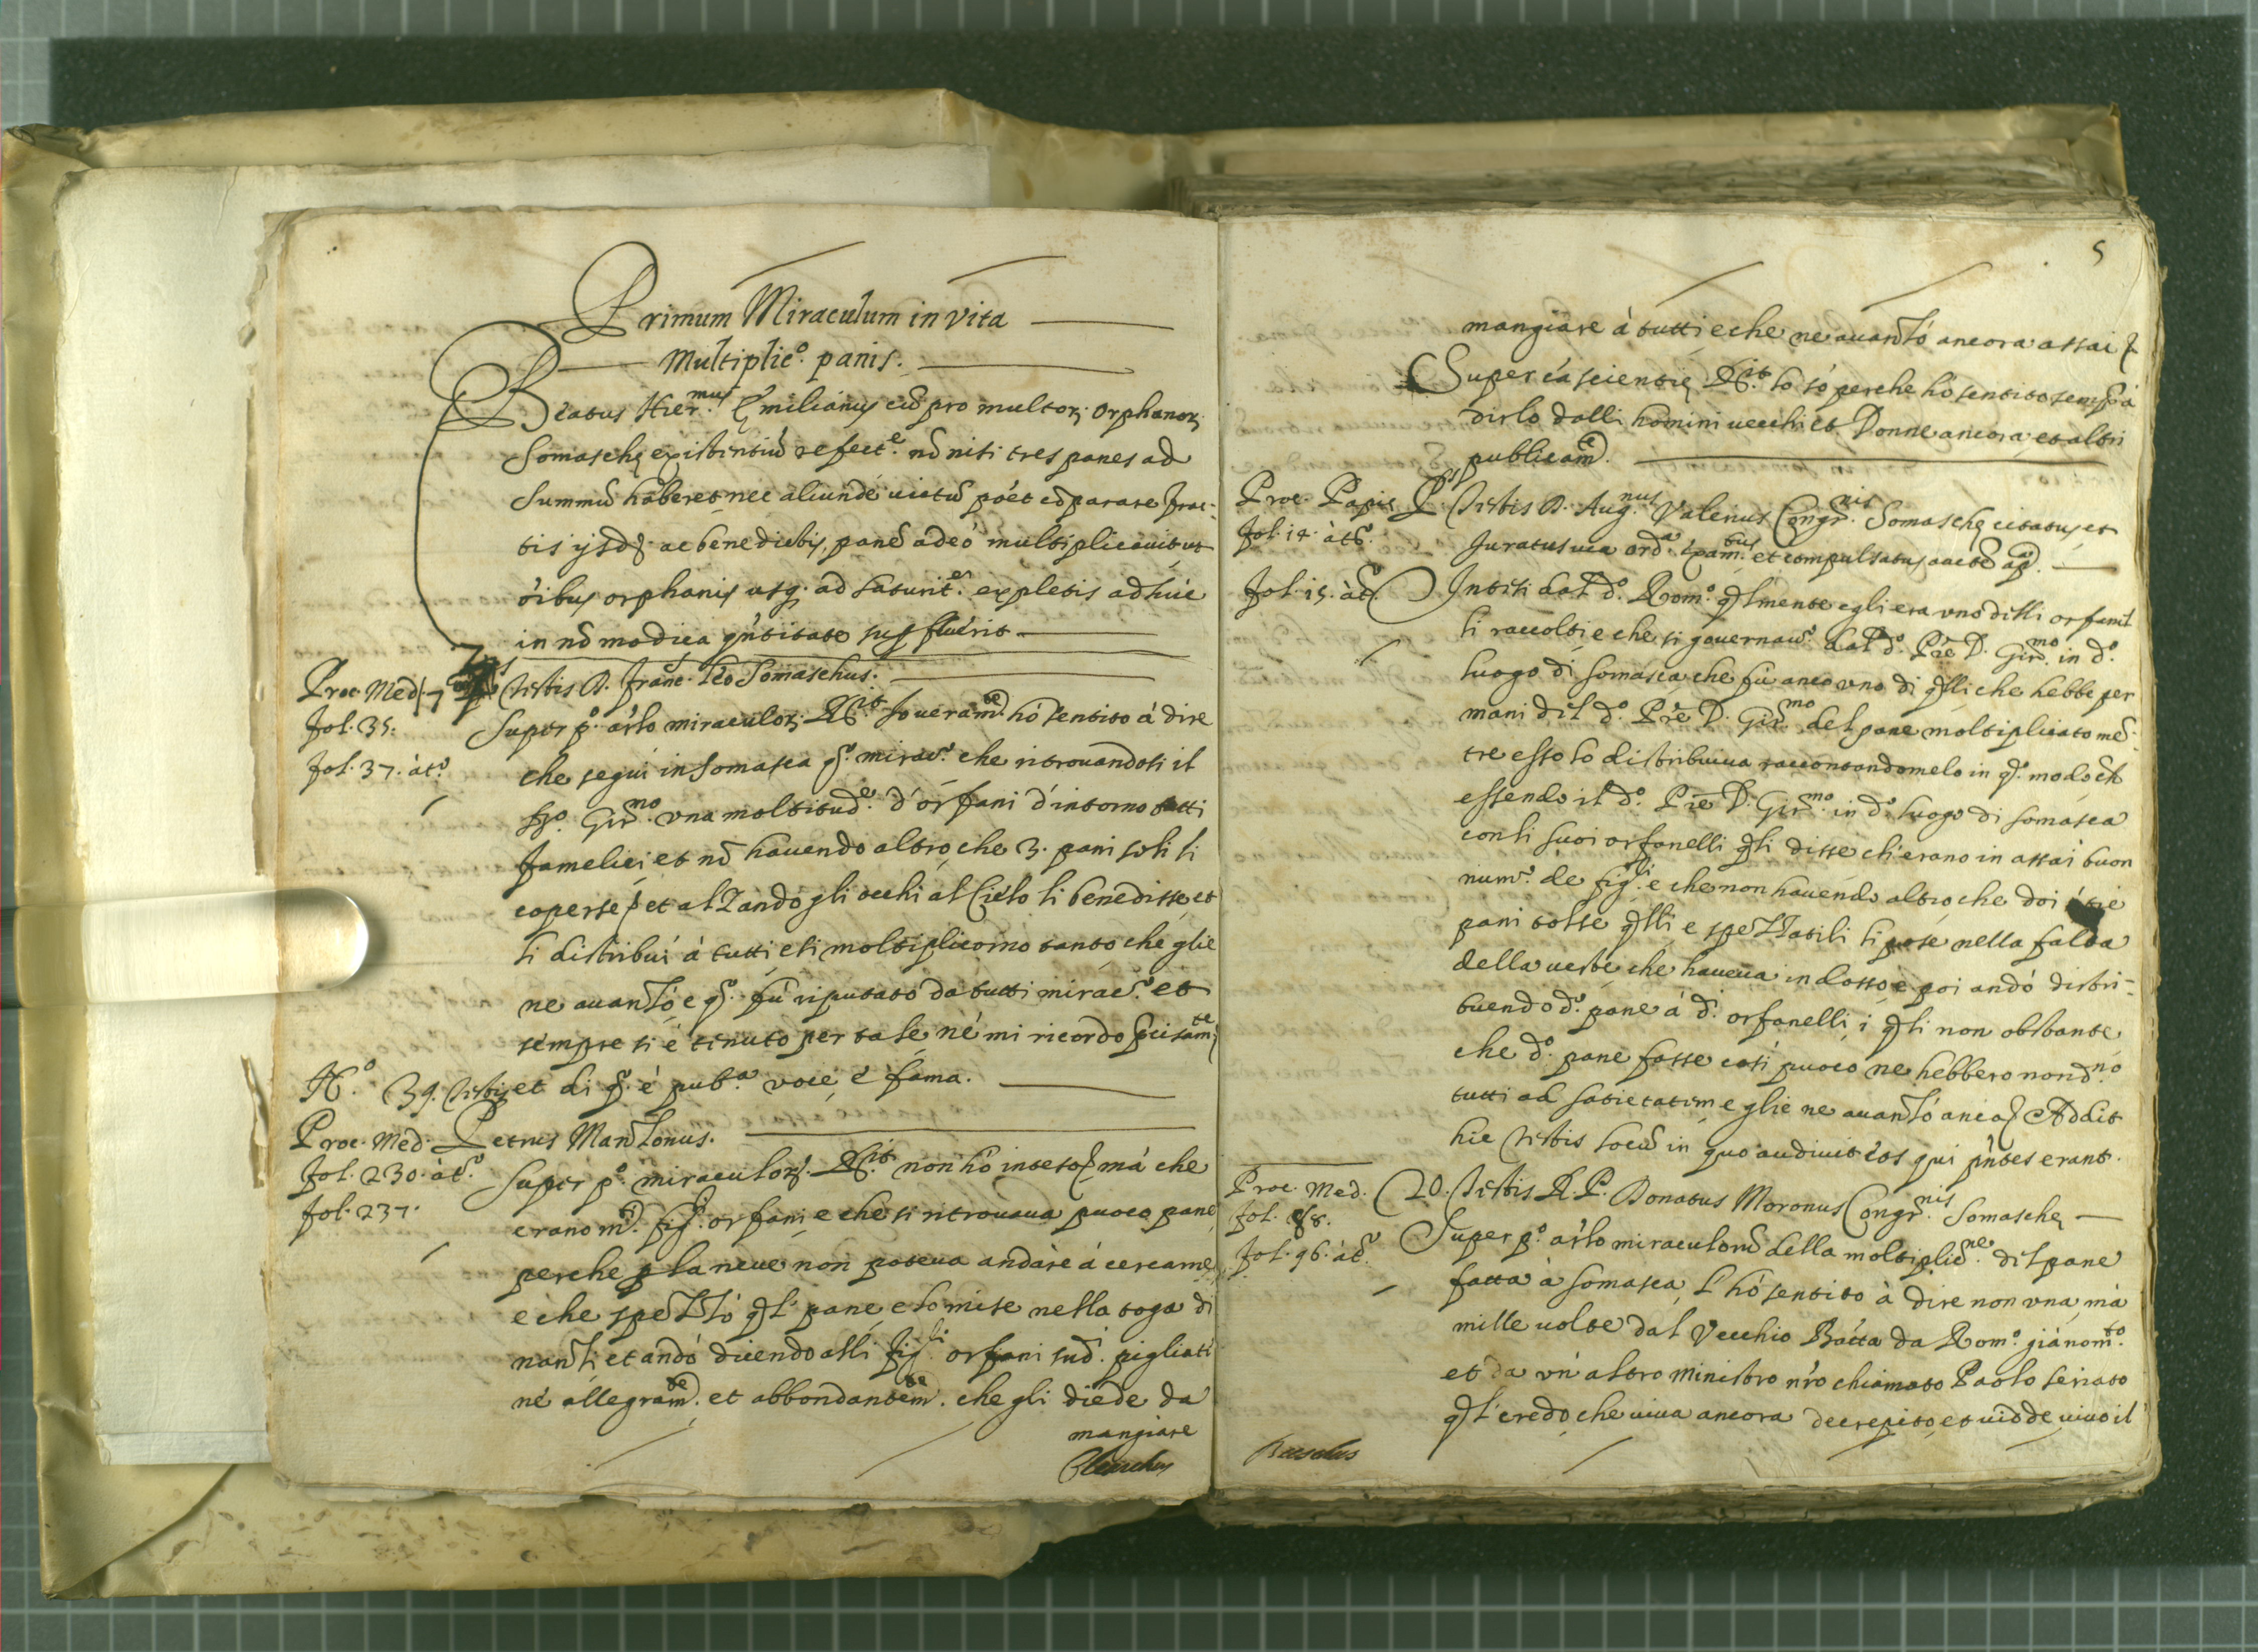 Primum Miraculum in vita
Multiplic.º panis.
Beatus Hier.mus Emilianus cũ pro multor. orphanor.
Somaschę existentiũ refect.e nõ nisi tres panes ad
summũ haberet nec aliunde uictũ põet eõ parare frac-
tis ijsd. ac benedictis, panẽ adeò multiplicauit ut
õibus orphanis usq. ad saturit.em expletis adhuc
in nõ modica qñtitate superfluerit
Proc. Med. 7 Testis D. Franc. Leo Somaschus.
fol. 35. Super p.º artlo miraculor. Rit. Io ueram.te hò sentito à dire
fol. 37. àt.º che seguì in Somasca q.º mirac.º che ritrouandosi il
Gir.mo una moltitud.e d'orfani d'intorno tutti
famelici et nõ hauendo altro che 3. pani soli li
coperse et alzando gli occhi al Cielo li benedisse et
li distribuì à tutti e si moltiplicorno tanto che glie
ne auanzò e q.º fù riputato da tutti mirac.º et
sempre si è tenuto per tale nè mi ricordo precisam.te
39. Testis et di q.º è pub.a voce, è fama.
Proc. Med. Petrus Manzonus.
fol. 230. àt.º Super p.º miraculor. Rit. non hò inteso mà che
fol. 237. erano m.ti fig.li orfani e che si ritrouaua puoco pane
perche p la neue non poteua andare à cercarne
e che spezzò ql pane, e lo mise nella toga di
nanzi, et andò dicendo alli fig.li orfani sud.i pigliati
nè allegram.te et abbondantem.te che gli diede da
mangiare
5
mangiare à tutti e che ne auanzò ancora assai
Super cã scientię Rit. lo sò perche hò sentito semp à
dirlo dalli homini uecchi et Donne ancora, et altri
publicam.te
Proc. Papię P.s Testis D. Aug.nus Valerius Congr.nis Somaschę citatus, et
fol. 14. àt.º Juratus uia ord.a exam.tus et compulsatus
fol. 15. àt.º Intesi dal d.º Rom.º qlmente egli era uno delli orfani
li raccolti e che si gouernau.º dal d.º Prẽ D. Gir.mo in d.º
luogo di Somasca, che fù anco uno di qlli che hebbe per
mani del d.º Prẽ D. Gir.mo del pane moltiplicato mẽ-
tre esso lo distribuiua raccontandomelo in q.º modo ch
essendo il d.º Prẽ D. Gir.mo in d.º luogo di Somasca
con li suoi orfanelli qli disse ch'erano in assai buon
num.º de fig.li e che non hauendo altro che doi ò trè
pani tolse qlli e spezzatili li pose nella falda
della ueste che haueua in dosso, e poi andò distri-
buendo d.º pane à d.i orfanelli, i qli non obstante
che d.º pane fosse così puoco ne hebbero nond.no
tutti ad satietatem, e glie ne auanzò anco Addit
hic Testis locũ in quo audiuit eos qui pñtes erant.
Proc. Med. 20. Testis R. P. Donatus Moronus Congr.nis Somaschę
fol. Super p.º artlo miraculorũ della moltiplic.ne del pane
fol. 96. àt.º fatta à Somasca, l'hò sentito à dire non una, mà
mille uolte dal Vecchio Batta da Rom.º già nom.to
et da un altro ministro nrõ chiamato Paolo seriato
ql credo, che uiua ancora decrepito, et uidde uiuo il